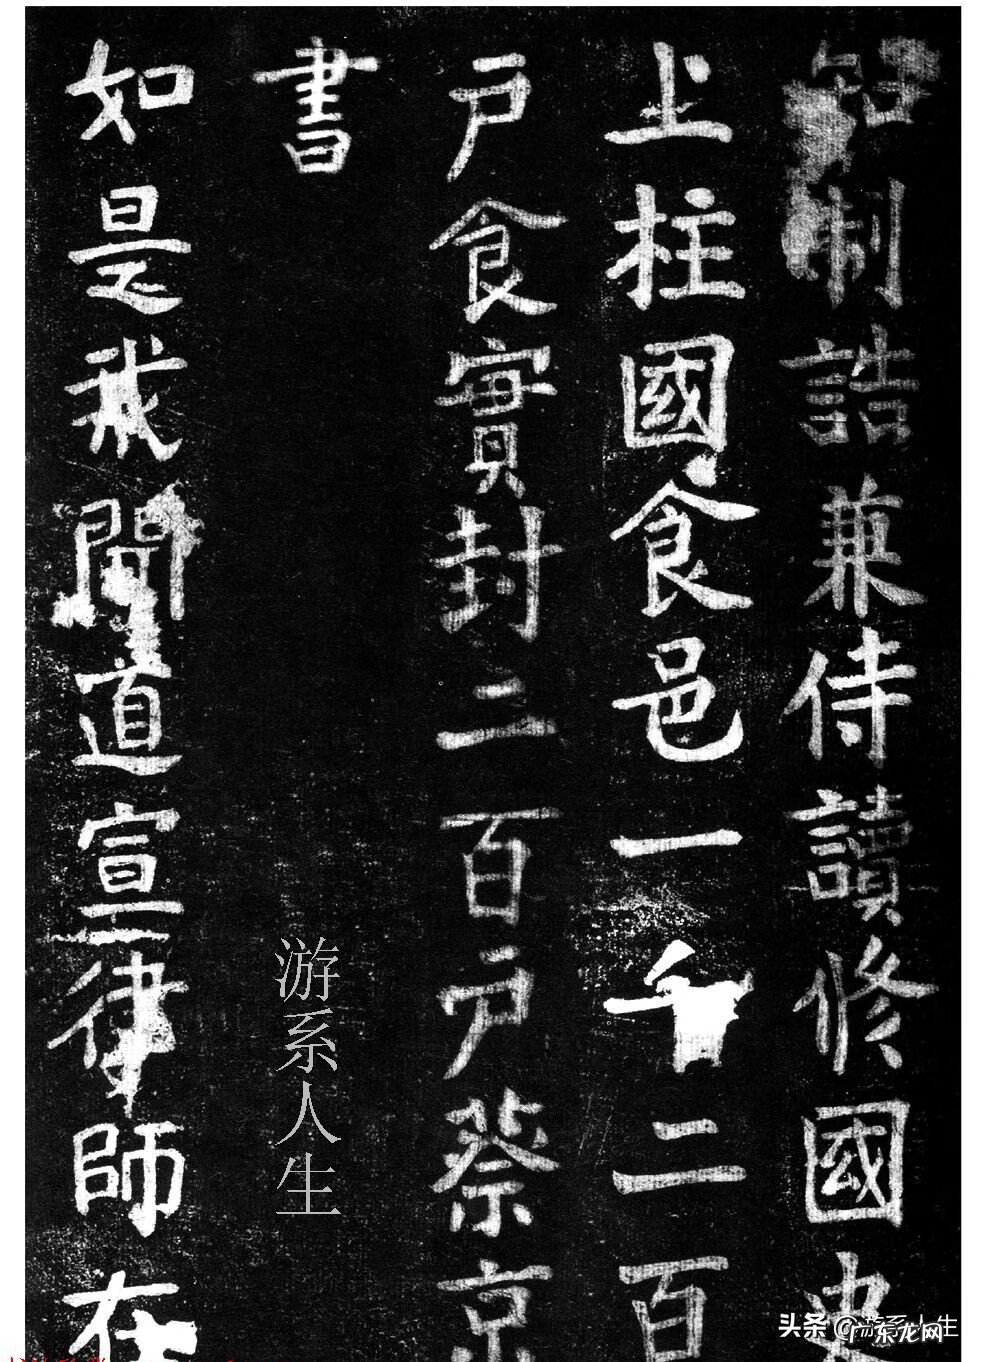 知制誥兼侍讀修國史
上柱國食邑一千二百
戶食實封二百戶蔡京
書
如是我聞道宣律師在
游系人生
头条 @广东龙网